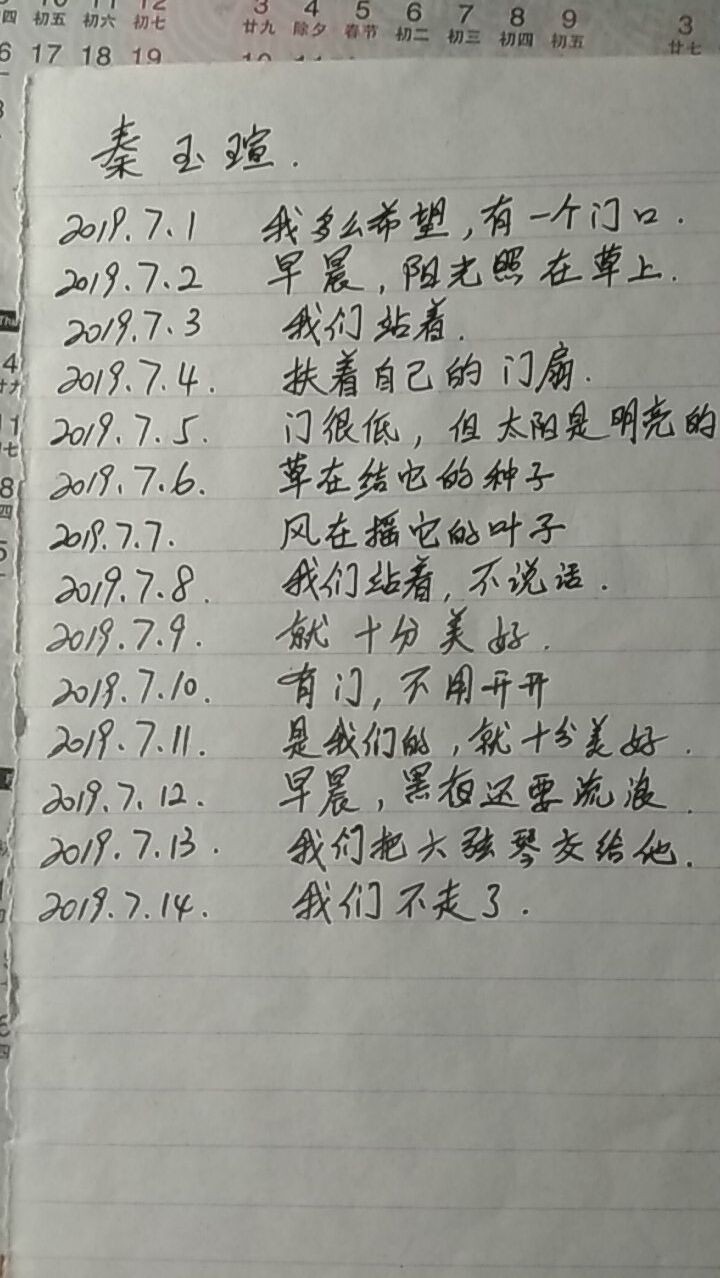 10 11 12 3 4 5 6 7 8 9 3
四 初五 初六 初七 廿九 除夕 春节 初二 初三 初四 初五 廿七
6 17 18 19
秦玉瑄.
2019.7.1 我多么希望,有一个门口.
2019.7.2 早晨,阳光照在草上.
2019.7.3 我们站着.
2019.7.4. 扶着自己的门扇.
2019.7.5. 门很低,但太阳是明亮的
2019.7.6. 草在结它的种子
2019.7.7. 风在摇它的叶子
2019.7.8. 我们站着,不说话.
2019.7.9. 就十分美好.
2019.7.10. 有门,不用开开
2019.7.11. 是我们的,就十分美好.
2019.7.12. 早晨,黑夜还要流浪.
2019.7.13. 我们把六弦琴交给他.
2019.7.14. 我们不走了.